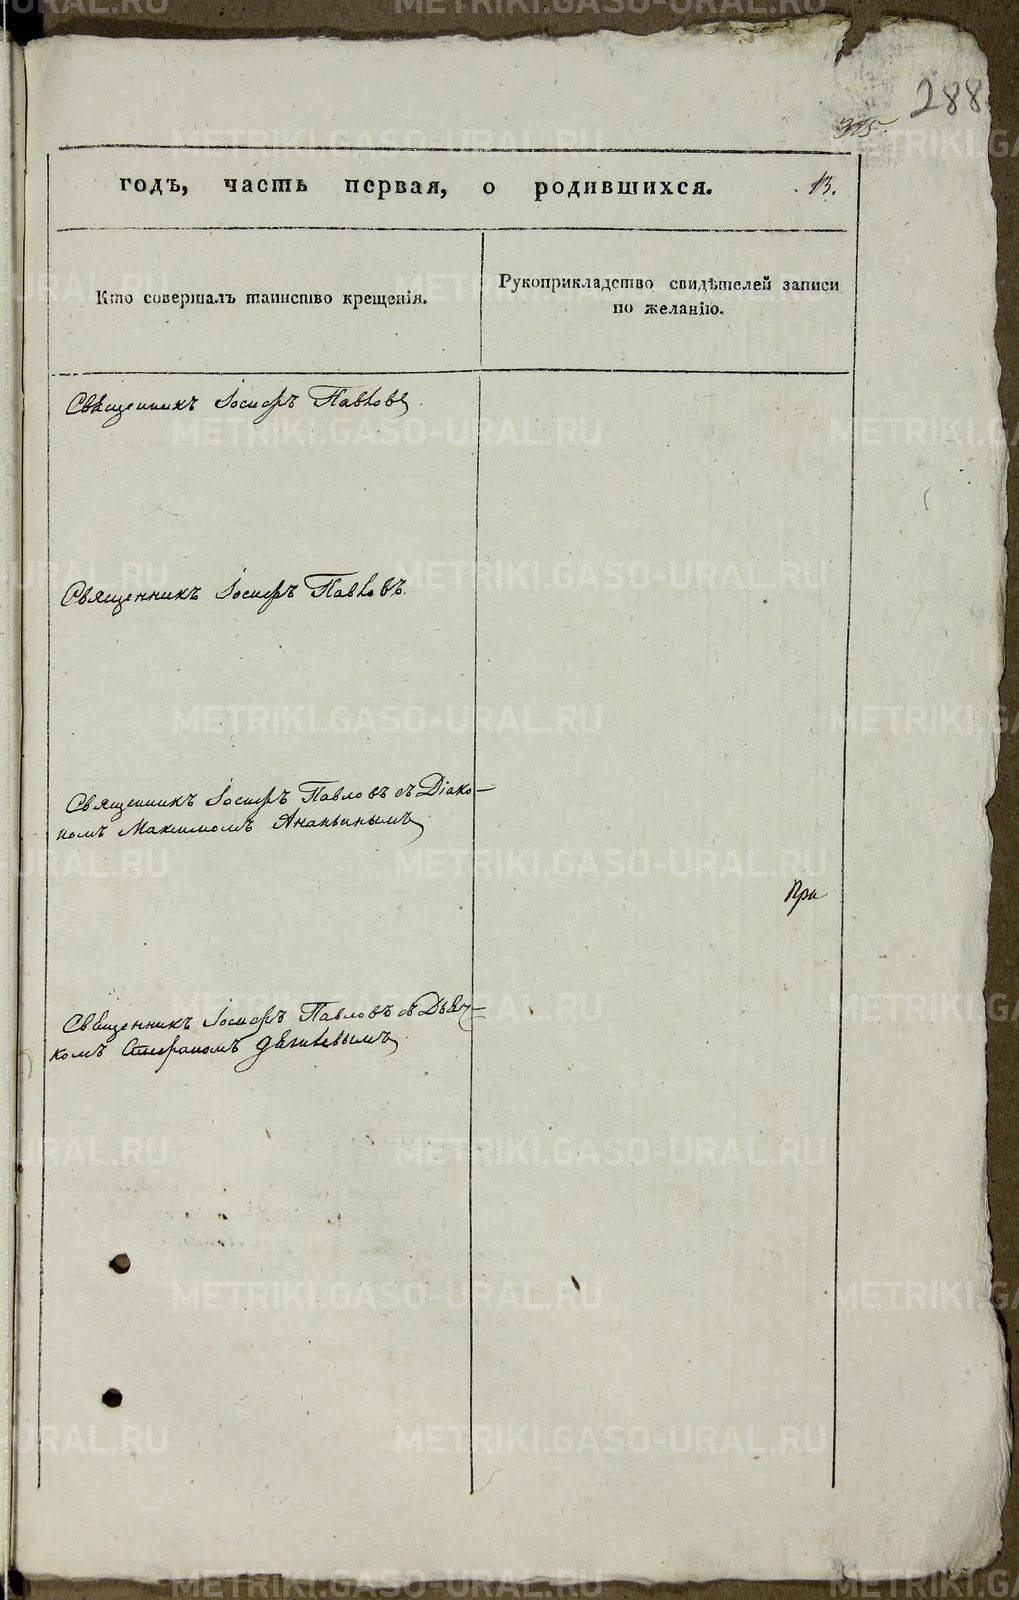 288
315.
годъ, часть первая, о родившихся. 13.
Кто совершалъ таинство крещенія.
Рукоприкладство свидѣтелей записи
по желанію.
Священникъ Іосифъ Павловъ
Священникъ Іосифъ Павловъ.
Священникъ Іосифъ Павловъ съ Діако-
номъ Максимомъ Ананьинымъ
При
Священникъ Іосифъ Павловъ съ Дьяч-
комъ Стефаномъ
METRIKI.GASO-URAL.RU